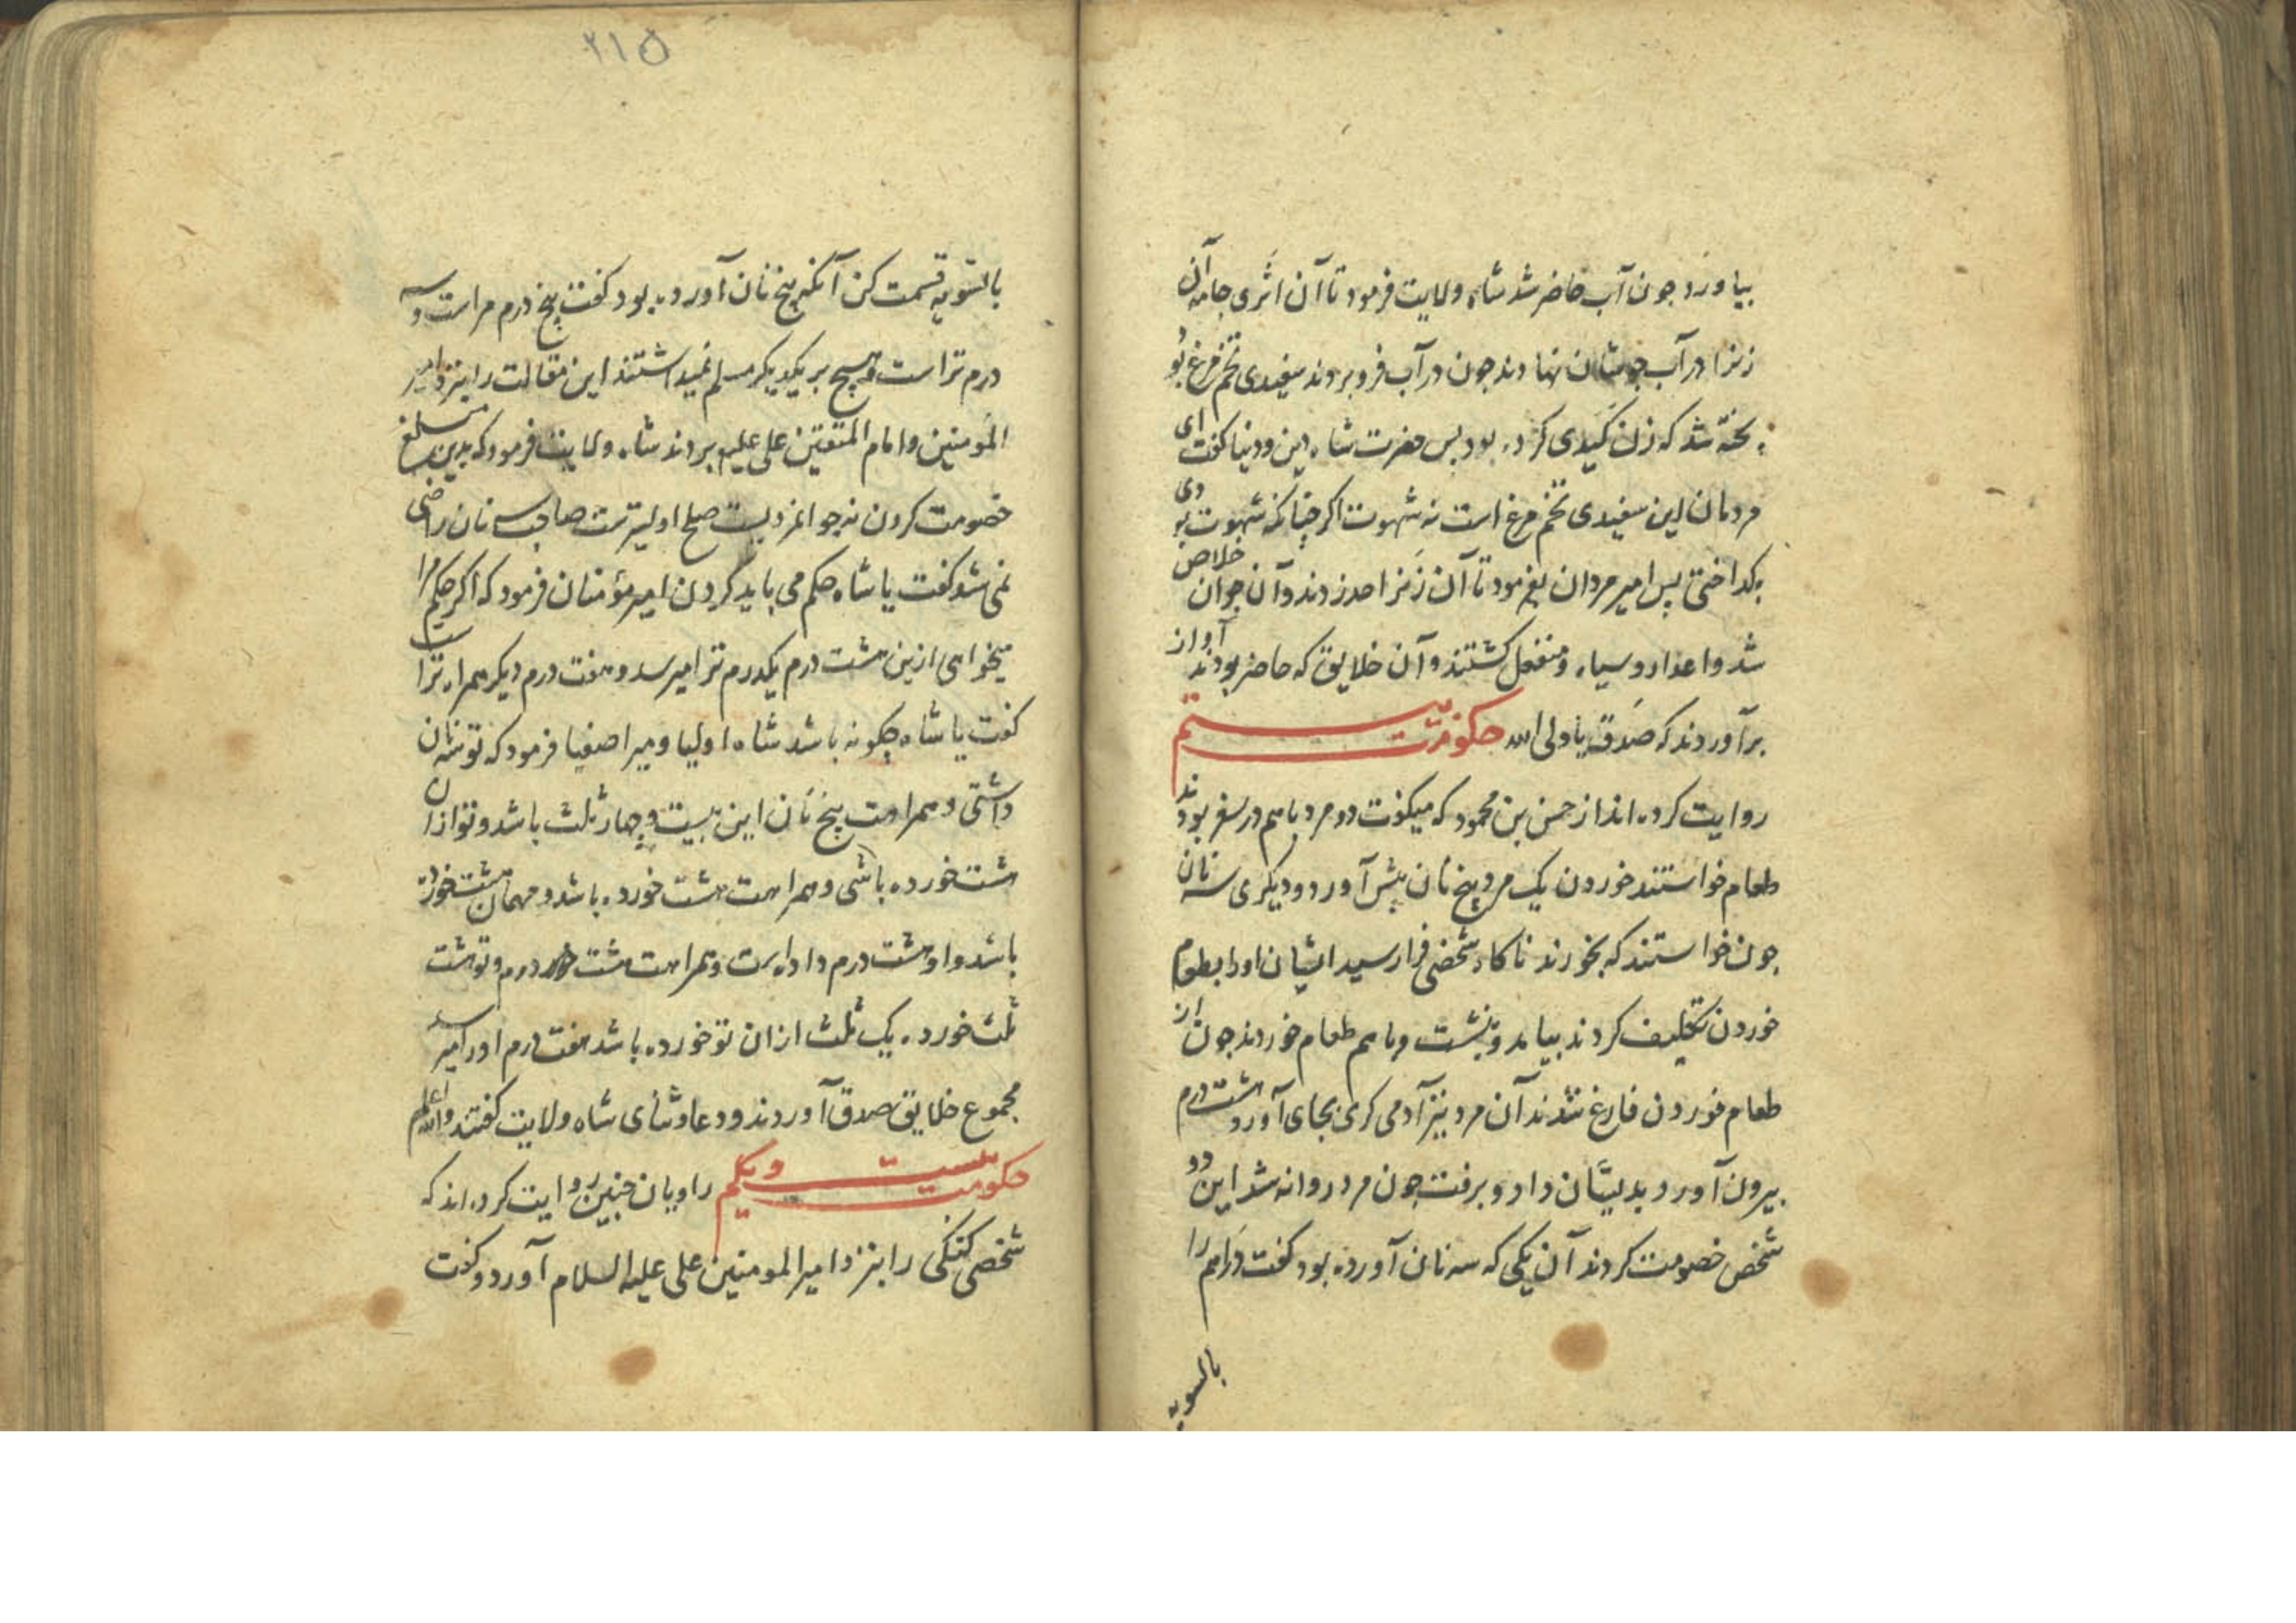 بیاورد جون آب حاضر شد شاه ولایت فرمود تا آن اثری جامه آن
زنرا در آب جوشان نهادند جون در آب فرو بردند سفیدی تخم مرغ بو
د بخته شد که زن کیدی کرده بود بس حضرت شاه دین و دنیا کفت ای
مردمان این سفیدی تخم مرغ است نه شهوت اکر جنانکه شهوت بودی
بکداختی پس امیر مردان بفرمود تا آن زنرا حد زدند و آن جوان خلاص
شد و اعدا روسیاه و منفعل کشتند و آن خلایق که حاضر بودند آواز
برآوردند که صدق یا ولی الله حکومت بیستم
روایت کرده اند از حسن بن محمود که میکفت دو مرد باهم در سفر بودند
طعام خواستند خوردن یک مرد پنج نان پیش آورد و دیکری سه نان
جون خواستند که بخورند ناکاه شخصی فرا رسید ایشان او را بطعام
خوردن تکلیف کردند بیامد و بنشست و باهم طعام خوردند جون از
طعام خوردن فارغ شدند آن مرد نیز آدمی کری بجای آورد هشت درم
بیرون آورد و بدیشان داد و برفت جون مرد روانه شد این دو
شخص خصومت کردند آن یکی که سه نان آورده بود کفت دراهم را
بالسویه
۲۱۵
بالسویه قسمت کن آنکه پنج نان آورده بود کفت پنج درم مراست و سه
درم تراست و هیچ بر یکدیکر مسلم نمیداشتند این مقالت را بنزد امیر
المومنین و امام المتقین علی علیه بردند شاه ولایت فرمود که بدین مبلغ
خصومت کردن نه جوانمردیست صلح اولیترست صاحب سه نان راضی
نمی شد کفت یا شاه حکم می باید کردن امیر مؤمنان فرمود که اکر حکم مرا
میخواهی ازین هشت درم یکدرم ترا میرسد و هفت درم دیکر همراه تراست
کفت یا شاه چکونه باشد شاه اولیا و میر اصفیا فرمود که تو سه نان
داشتی و همراهت پنج نان این بیست و چهار ثلث باشد و تو ازان
هشت خورده باشی و همراهت هشت خورده باشد و مهمان هشت خورده
باشد و او هشت درم داده است و همراهت هشت درم و تو هشت
ثلث خورده یک ثلث ازان تو خورده باشد هفت درم او را میرسد
مجموع خلایق صدق آوردند و دعا و ثنای شاه ولایت کفتند والله اعلم
حکومت بیست و یکم راویان جنین روایت کرده اند که
شخصی کنکی را بنزد امیر المومنین علی علیه السلام آورد و کفت